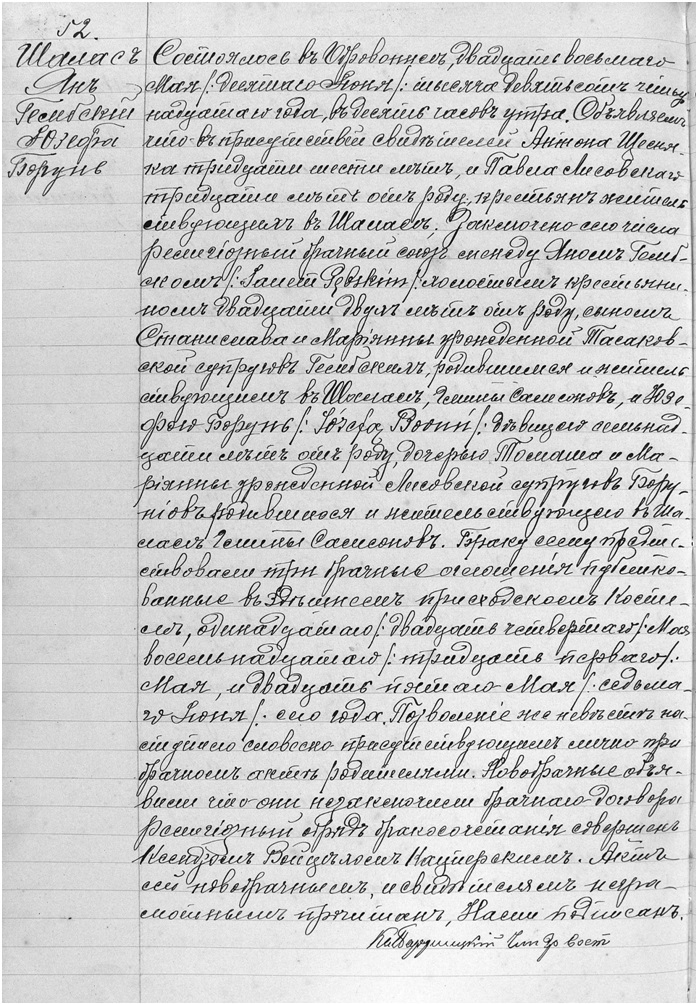 52.
Шаласъ
Янъ
Гембскій
Юзефа
Борунь
Состоялось въ Одровонжѣ, двадцать восьмаго
Мая /: десятаго Іюня /: тысяча девятьсотъ четыр-
надцатаго года, въ десять часовъ утра. Объявляемъ
что въ присутствіи свидѣтелей Антона Щесня-
ка тридцати шести лѣтъ, и Павла Лисовскаго
тридцати лѣтъ отъ роду, крестьянъ житель
ствующихъ въ Шаласѣ. Заключено сего числа
религіозный брачный союзъ между Яномъ Гемб-
скомъ /: холостымъ крестьяни-
номъ двадцати двухъ лѣтъ отъ роду, сыномъ
Станислава и Маріянны урожденной Тасаков-
ской супруговъ Гембскихъ, родившимся и житель
ствующимъ въ Шаласѣ, Гмины Самсоновъ, и Юзе-
фою Борунь /: Józefą Boruń /: дѣвицею семьнад-
цати лѣтъ отъ роду, дочерью Томаша и Ма-
ріянны урожденной Лисовской супруговъ Бору-
нювъ, родившеюся и жительствующею въ Ша-
ласѣ Гмины Самсоновъ. Браку сему предше-
ствовали три брачные оглашенія публико-
ванные въ здѣшнемъ приходскомъ Косте-
лѣ, одинадцатаго /: двадцать четвертаго /: Мая
восемьнадцатаго /: тридцать перваго /:
Мая, и двадцать пятаго Мая /: седьма-
го Іюня /: сего года. Позволеніе же невѣстѣ на-
ступило словесно присутствующими лично при
брачномъ актѣ родителями. Новобрачные объя-
вили что они незаключили брачнаго договора
Религіозный обрядъ бракосочетанія совершенъ
Ксендзомъ Войцѣхомъ Кацперскимъ. Актъ
сей новобрачнымъ, и свидѣтелямъ негра-
мотнымъ прочитанъ, Нами подписанъ.